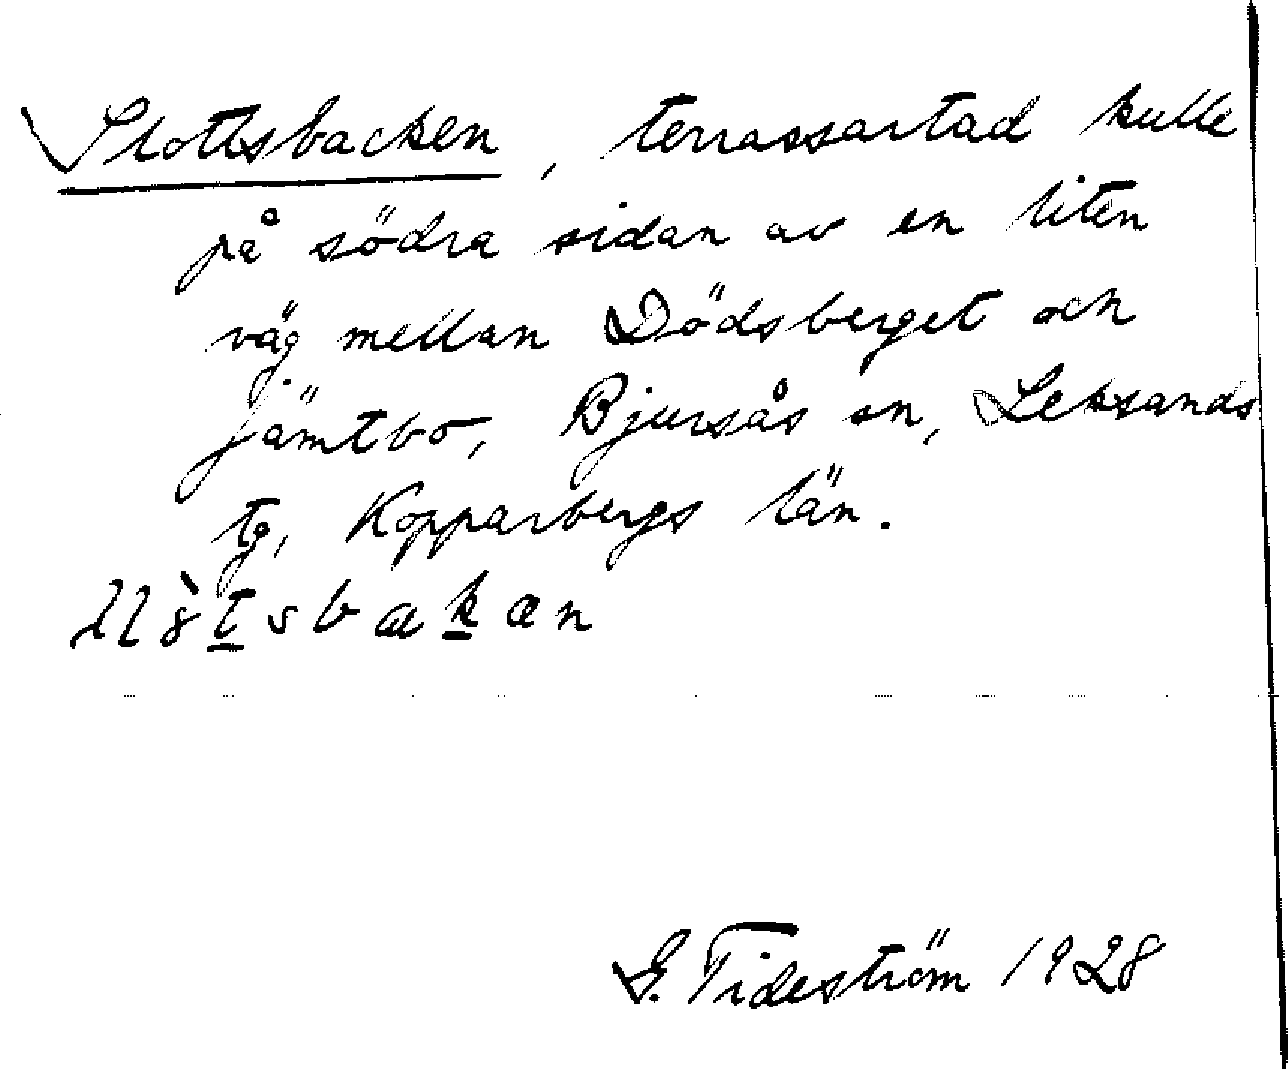 Slottsbacken, terrassartad kulle
på södra sidan av en liten
väg mellan Dödsberget och
Jämtbo, Bjursås sn, Leksands
tg, Kopparbergs län.
G. Tideström 1928